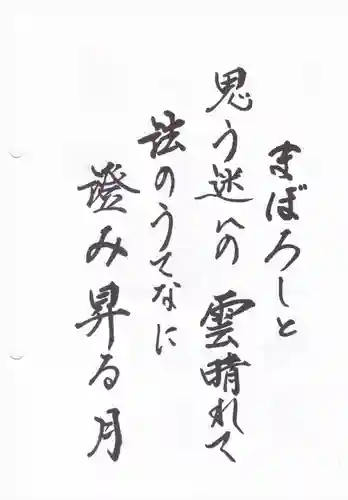 まぼろしと
思う迷いの 雲晴れて
法のうてなに
澄み昇る月